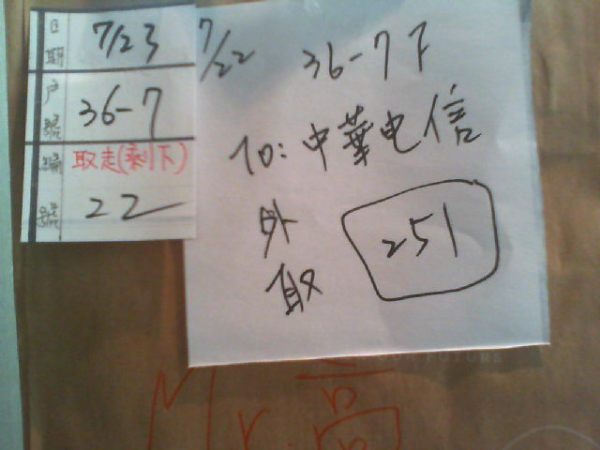 日期 7/23
戶號 36-7
取走(剩下)
編號 22
7/22 36-7F
TO: 中華电信
外取 251
Mr. 高